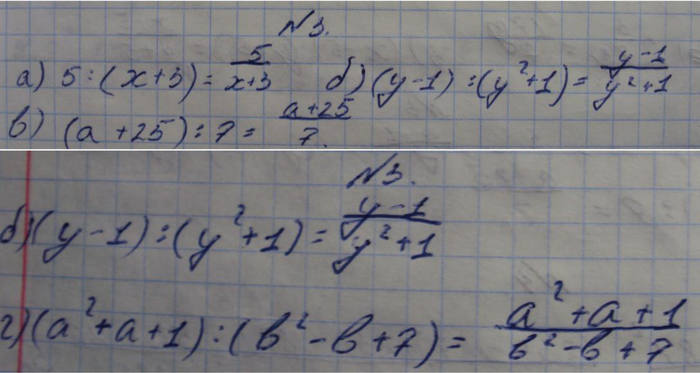 №3.
а) 5 : (x+3) = 5/(x+3) б) (y-1) : (y²+1) = (y-1)/(y²+1)
в) (a+25) : 7 = (a+25)/7.
№3.
б) (y-1) : (y²+1) = (y-1)/(y²+1)
г) (a²+a+1) : (b²-b+7) = (a²+a+1)/(b²-b+7)